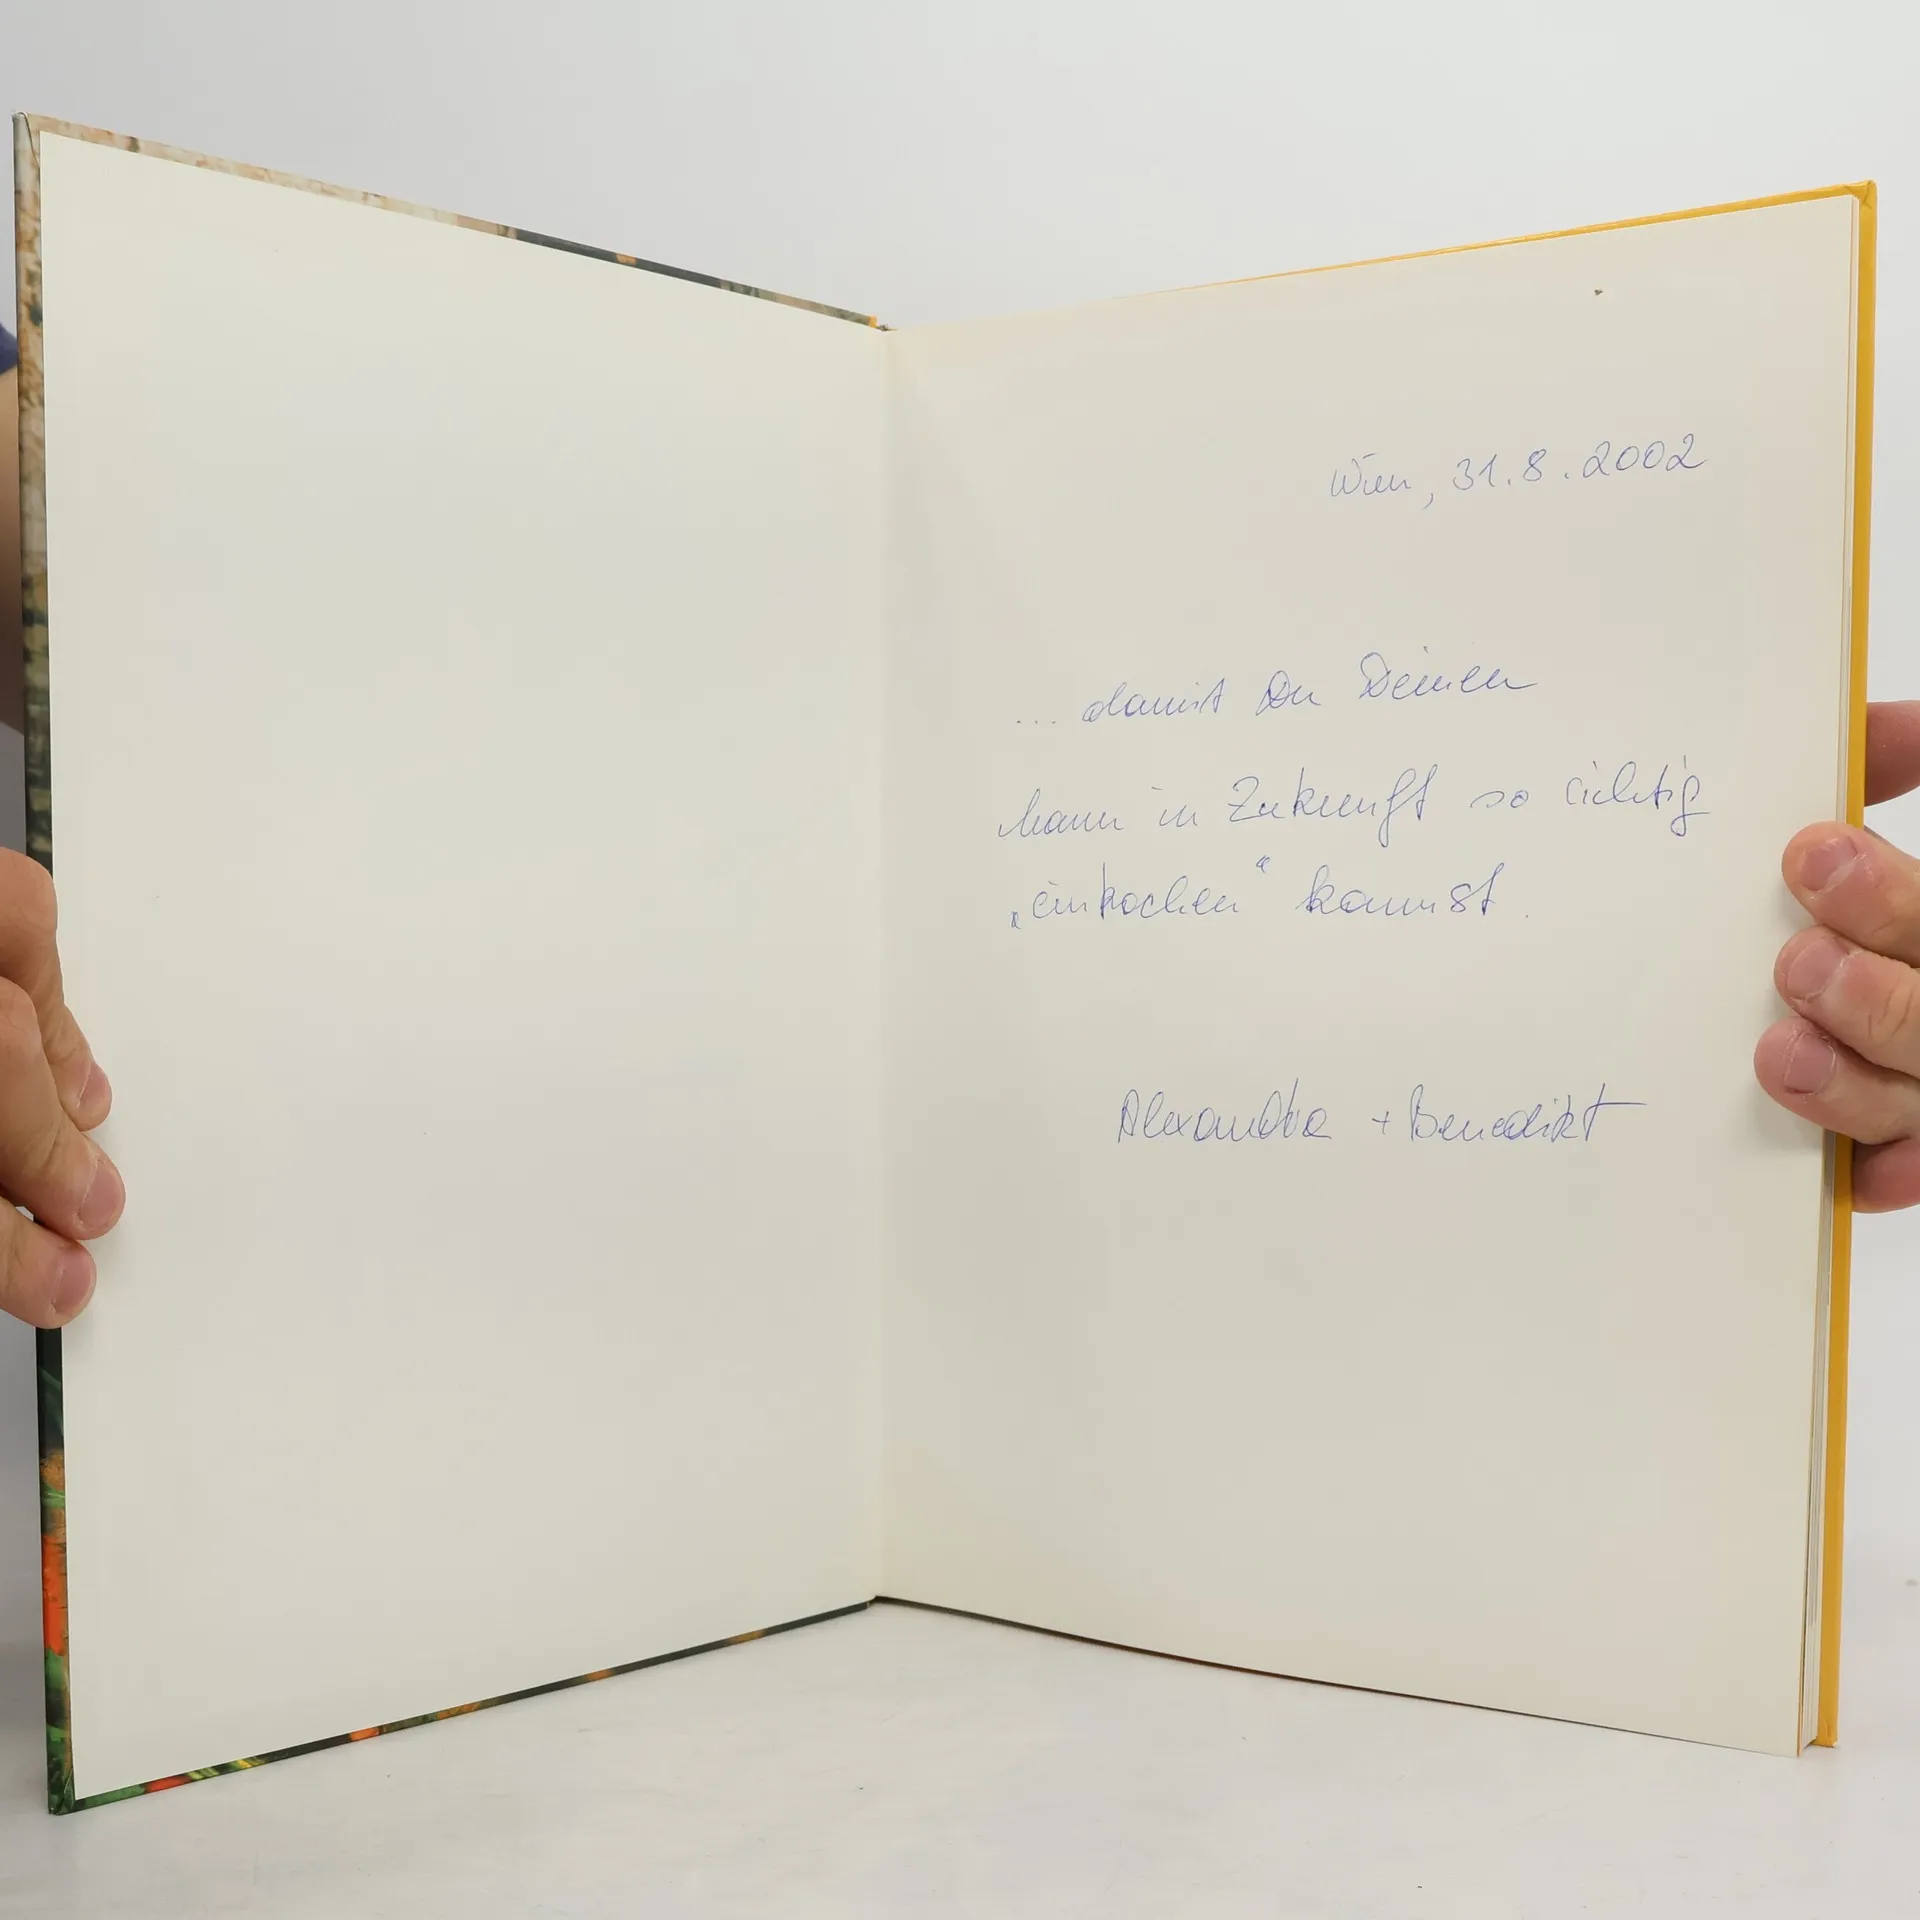 Wien, 31.8.2002
... damit Du Deinen
Mann in Zukunft so richtig
„einkochen“ kannst.
Alexandra + Benedikt